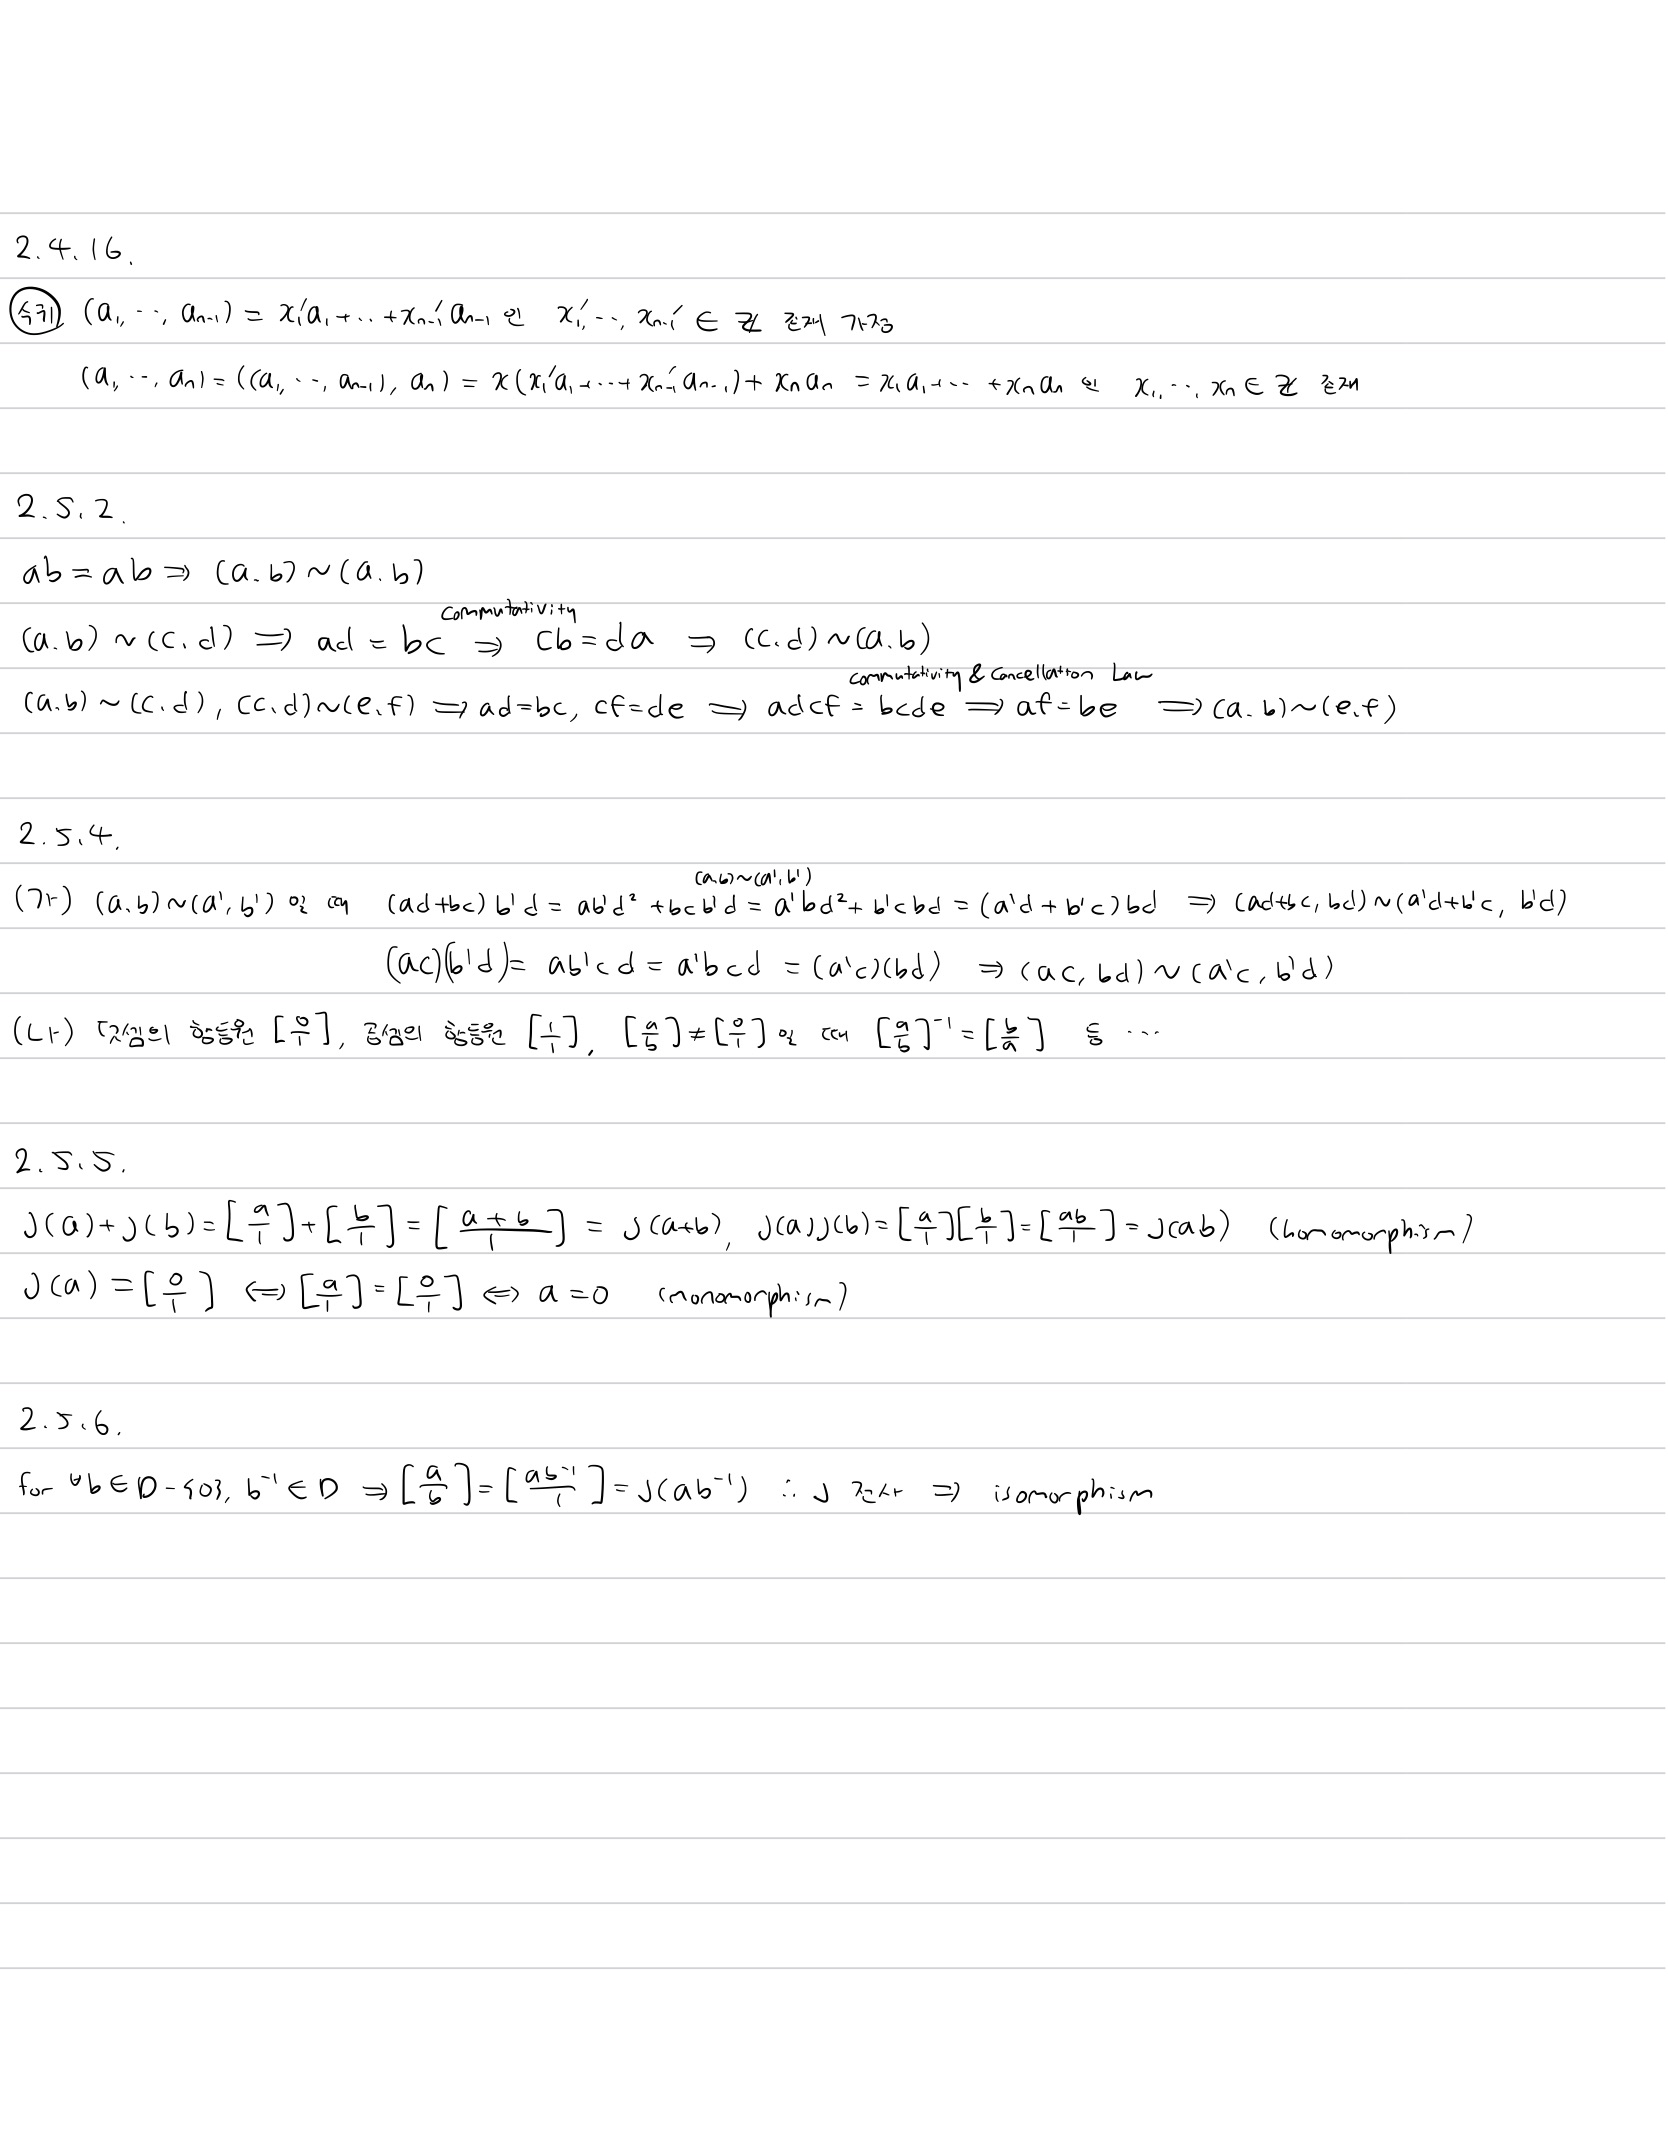 2.4.16.
숙귀 (a₁, ··, aₙ₋₁) = x₁'a₁ + ·· + xₙ₋₁'aₙ₋₁ 인 x₁', ··, xₙ₋₁' ∈ ℤ 존재 가정
(a₁, ··, aₙ) = ((a₁, ··, aₙ₋₁), aₙ) = x(x₁'a₁ + ··· + xₙ₋₁'aₙ₋₁) + xₙaₙ = x₁a₁ + ··· + xₙaₙ 인 x₁, ··, xₙ ∈ ℤ 존재
2.5.2.
ab = ab ⇒ (a.b) ~ (a.b)
commutativity
(a.b) ~ (c.d) ⇒ ad = bc ⇒ cb = da ⇒ (c.d) ~ (a.b)
commutativity & Cancellation Law
(a.b) ~ (c.d), (c.d) ~ (e.f) ⇒ ad = bc, cf = de ⇒ adcf = bcde ⇒ af = be ⇒ (a.b) ~ (e.f)
2.5.4.
(a,b)~(a',b')
(가) (a.b) ~ (a', b') 일 때 (ad+bc) b'd = ab'd² + bcb'd = a'bd² + b'cbd = (a'd + b'c) bd ⇒ (ad+bc, bd) ~ (a'd+b'c, b'd)
(ac)(b'd) = ab'cd = a'bcd = (a'c)(bd) ⇒ (ac, bd) ~ (a'c, b'd)
(나) 덧셈의 항등원 [0/1], 곱셈의 항등원 [1/1], [a/b] ≠ [0/1] 일 때 [a/b]⁻¹ = [b/a] 등 ···
2.5.5.
j(a) + j(b) = [a/1] + [b/1] = [a+b/1] = j(a+b), j(a)j(b) = [a/1][b/1] = [ab/1] = j(ab) (homomorphism)
j(a) = [0/1] ⇔ [a/1] = [0/1] ⇔ a = 0 (monomorphism)
2.5.6.
for ∀b ∈ D - {0}, b⁻¹ ∈ D ⇒ [a/b] = [ab⁻¹/1] = j(ab⁻¹) ∴ j 전사 ⇒ isomorphism